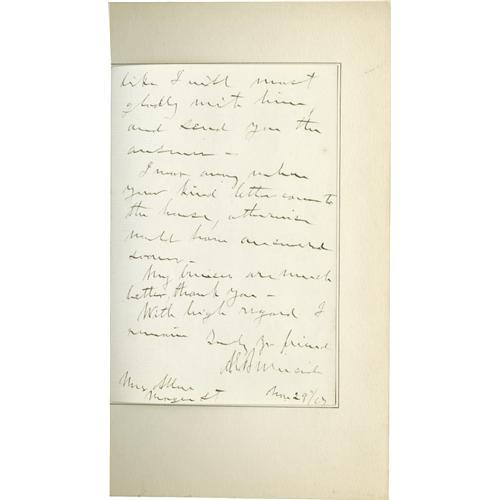 like I will most
gladly write him
and send you the
answer –
I was away when
your kind letter came to
the house, otherwise
would have answered
sooner –
My bruises are much
better, thank you –
With high regard I
remain yr friend
Mrs
St Nov 29